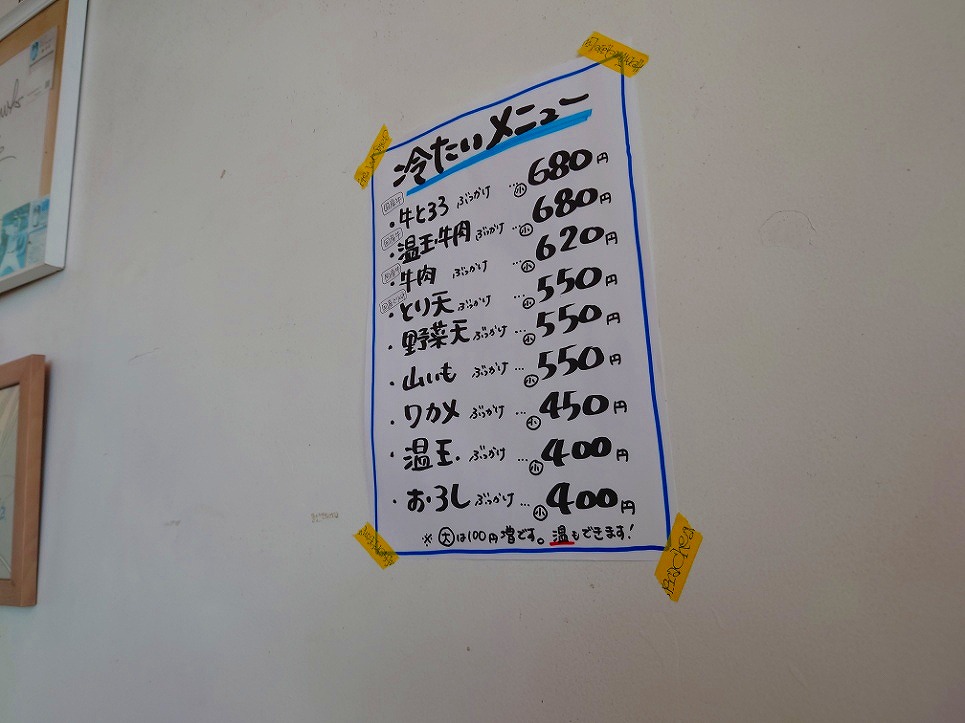 冷たいメニュー
国産牛
・牛とろろ ぶっかけ … 小 680円
国産牛
・温玉・牛肉 ぶっかけ … 小 680円
国産牛
・牛肉 ぶっかけ … 小 620円
・とり天 ぶっかけ … 小 550円
・野菜天 ぶっかけ … 小 550円
・山いも ぶっかけ … 小 550円
・ワカメ ぶっかけ … 小 450円
・温玉 ぶっかけ … 小 400円
・おろし ぶっかけ … 小 400円
※大は100円増です。温もできます!